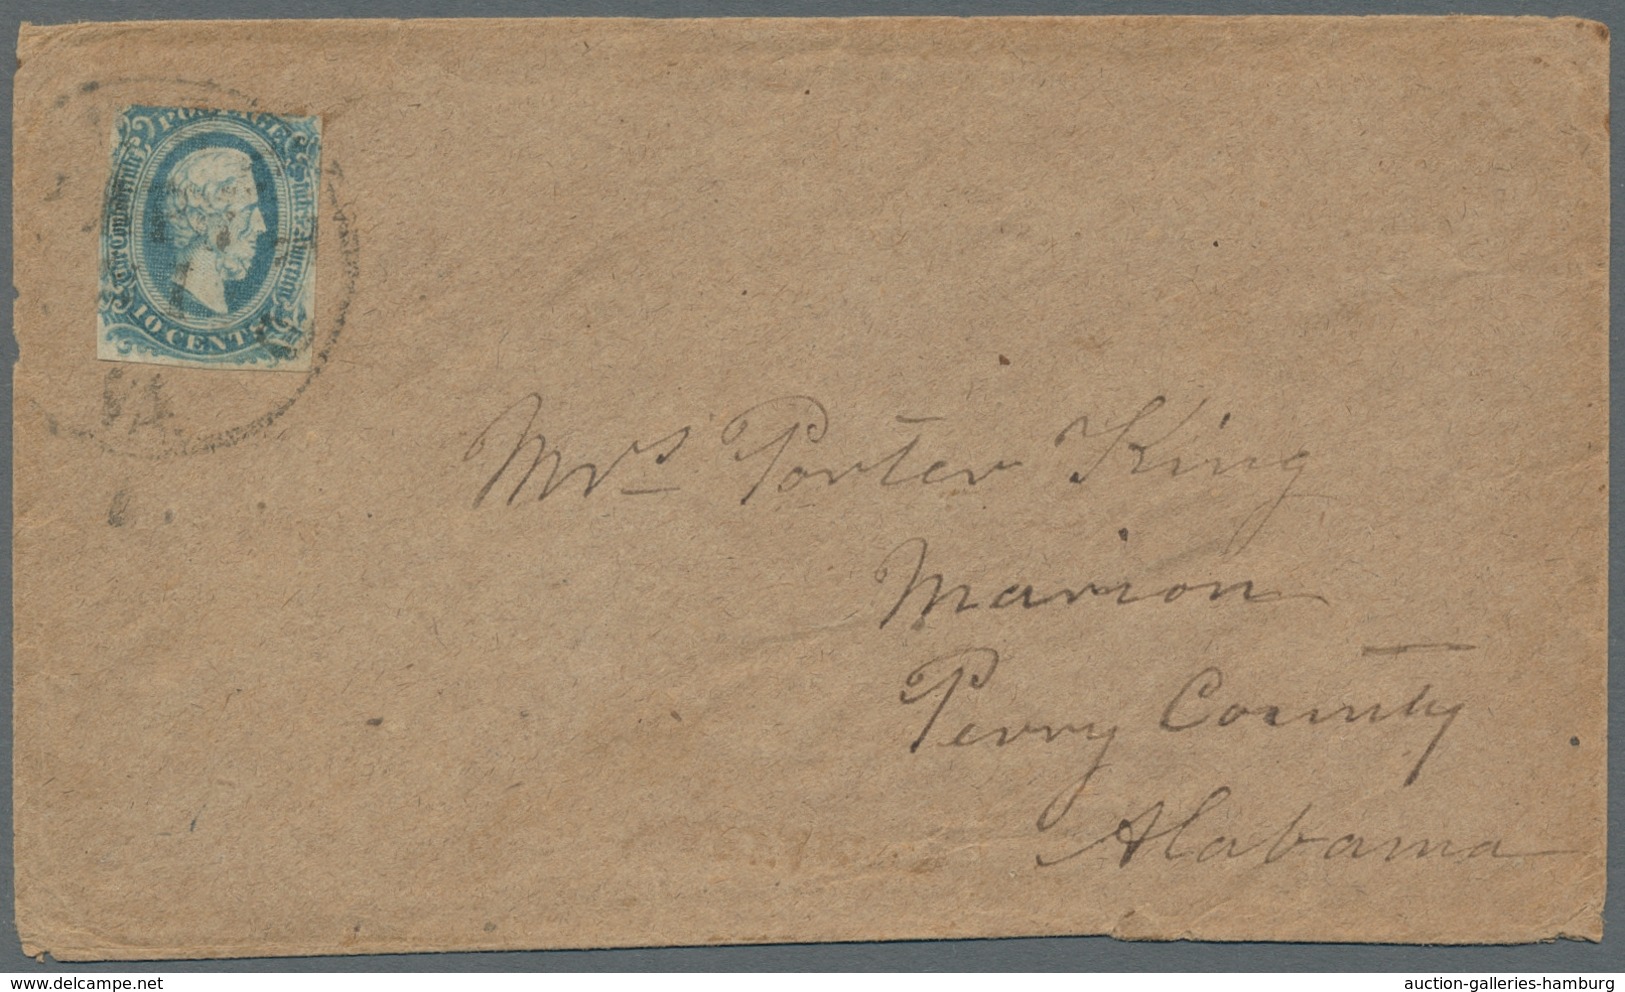 POSTAGE
The Confederate States of America
10 CENTS
VA.
Mrs Porter King
Marion
Perry County
Alabama
auction-galleries-hamburg
delcampe.net